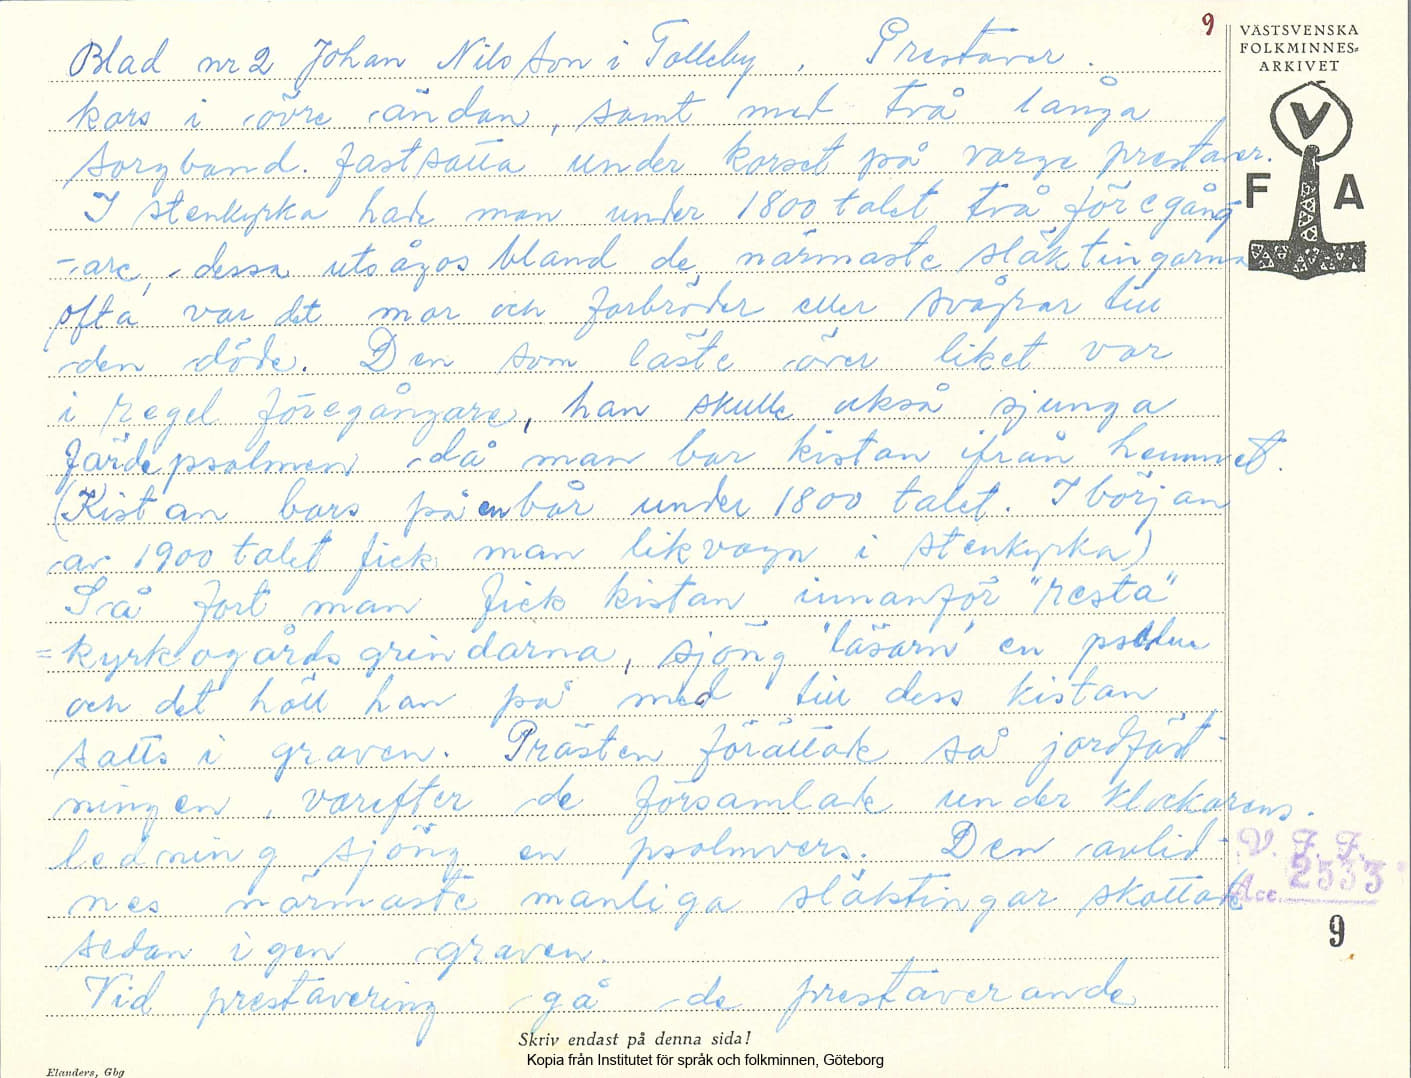 9
VÄSTSVENSKA
FOLKMINNES-
ARKIVET
V
F A
Blad nr 2 Johan Nilsson i Tolleby. Prestaver.
kors i övre ändan, samt med två långa
sorgband. fastsatta under korset på varge prestaver.
I stenkyrka hade man under 1800 talet två föregång
-are, dessa utsågos bland de närmaste släktingarna
ofta var det mor och farbröder eller svågrar till
den döde. Den som läste över liket var
i regel föregångare, han skulle också sjunga
färdepsalmen då man bar kistan ifrån hemmet.
(Kistan bars på en bår under 1800 talet. I början
av 1900 talet fick man likvagn i stenkyrka)
Så fort man fick kistan innanför "resta"
=kyrkogårdsgrindarna, sjöng "läsarn" en psalm
och det höll han på med till dess kistan
satts i graven. Prästen förättade så jordfäst-
ningen, varefter de församlade under klockarens.
ledning sjöng en psalmvers. Den avlid-
nes närmaste manliga släktingar skottade
sedan igen graven.
Vid prestavering gå de prestaverande
V. F. F.
Acc. 2533
9
Skriv endast på denna sida!
Kopia från Institutet för språk och folkminnen, Göteborg
Elanders, Gbg